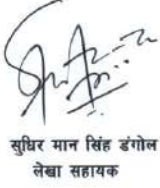 सुधिर मान सिंह डंगोल
लेखा सहायक